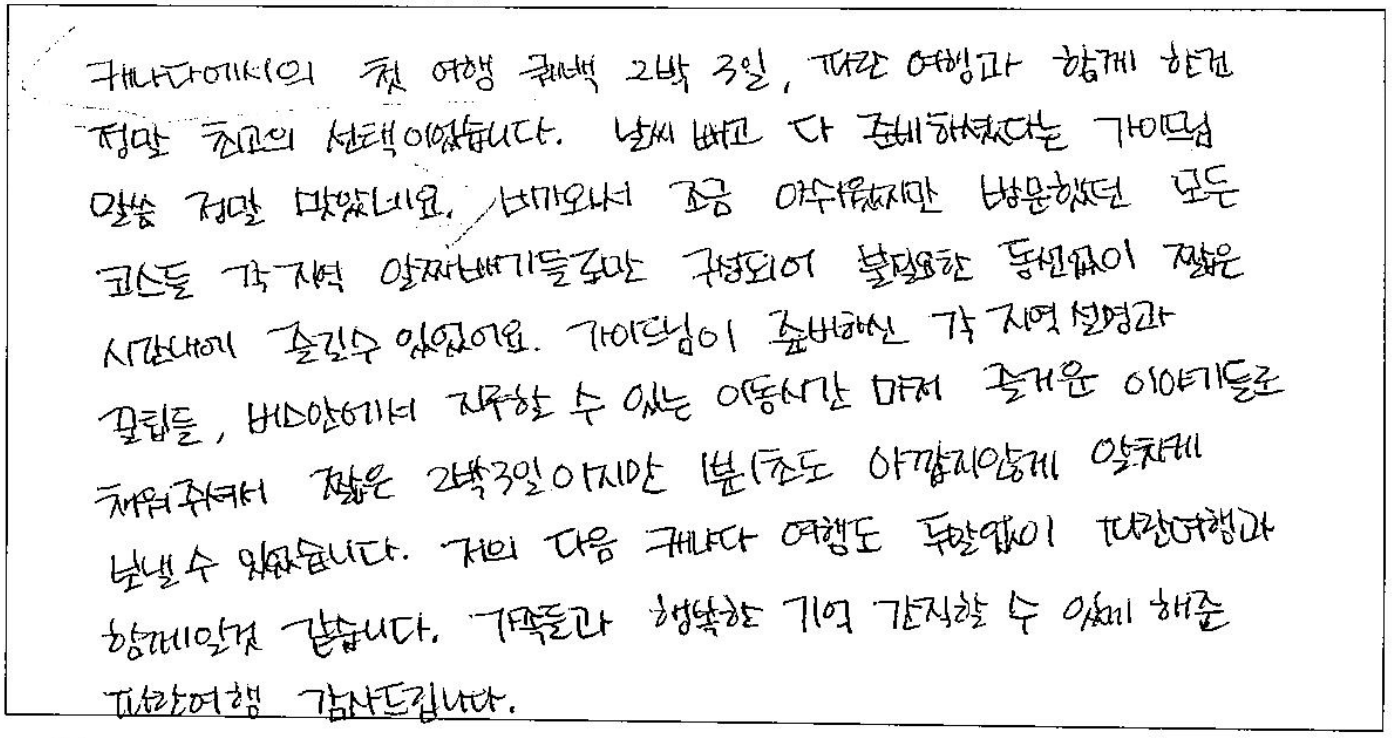 캐나다에서의 첫 여행 퀘백 2박 3일, 파란 여행과 함께 한건
정말 최고의 선택이었습니다. 날씨 빼고 다 준비하셨다는 가이드님
말씀 정말 맞았네요. 비가와서 조금 아쉬웠지만 방문했던 모든
코스들 각 지역 알짜배기들로만 구성되어 불필요한 동선없이 짧은
시간내에 즐길수 있었어요. 가이드님이 준비하신 각 지역 설명과
꿀팁들, 버스안에서 지루할 수 있는 이동시간 마저 즐거운 이야기들로
채워주셔서 짧은 2박3일이지만 1분1초도 아깝지않게 알차게
보낼 수 있었습니다. 저의 다음 캐나다 여행도 두말없이 파란여행과
함께일것 같습니다. 가족들과 행복한 기억 간직할 수 있게 해준
파란여행 감사드립니다.